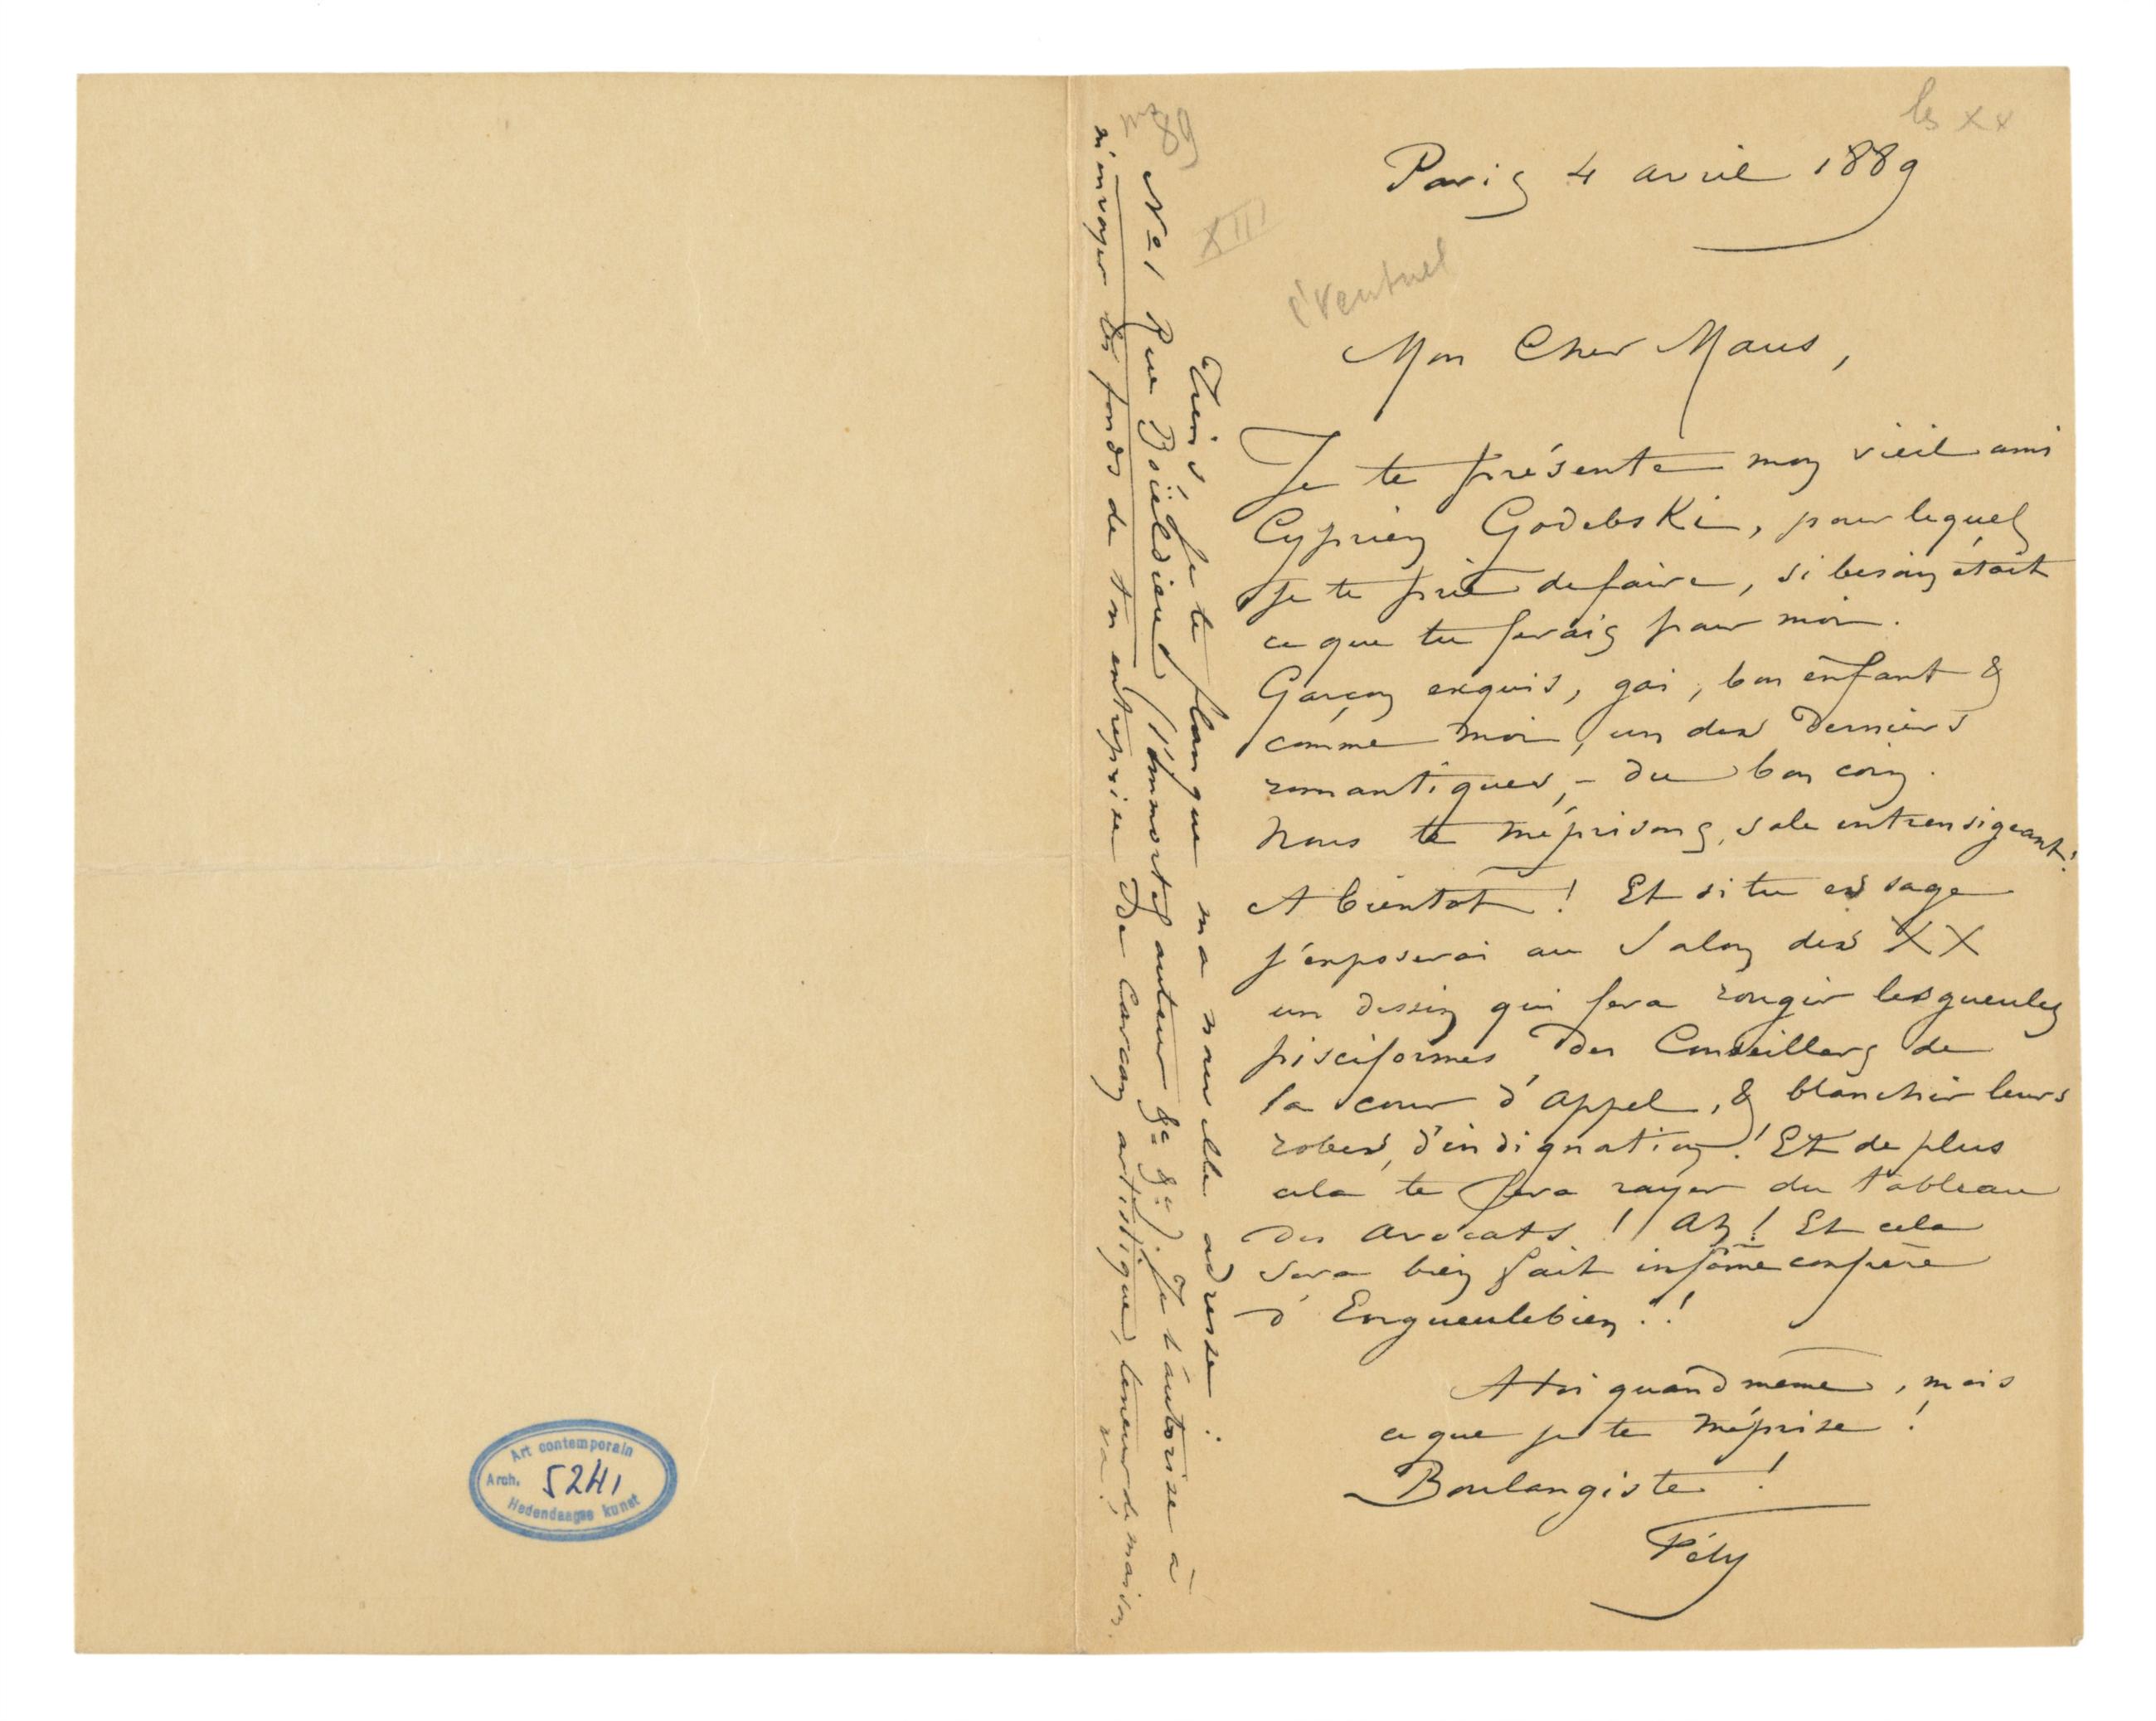 les XX
Paris 4 avril 1889
89
XIII
éventuel
Mon Cher Maus,
Je te présente mon vieil ami
Cyprien Godebski, pour lequel
je te prie de faire, si besoin était
ce que tu ferais pour moi.
Garçon exquis, gai, bon enfant &
comme moi, un des derniers
romantiques, – du bon coin.
Nous te méprisons, sale intransigeant!
A bientôt ! Et si tu es sage
j'exposerai au Salon des XX
un dessin qui fera rougir les gueules
pisciformes des Conseillers de
la cour d'appel, & blanchir leurs
robes, d'indignation ! Et de plus
cela te fera rayer du tableau
des avocats ! Ah ! Et cela
sera bien fait infâme compère
d'Engueulebien !!
A toi quand même, mais
ce que je te méprise !
Boulangiste !
Fély
Tiens je te flanque ma nouvelle adresse :
N° 1 Rue Boïeldieu (l'immortel auteur &a &a). Je t'autorise à
m'envoyer les fonds de ton entreprise De Carcan artistique, teneur de maison,
va !
Art contemporain
Arch. 5241
Hedendaagse kunst